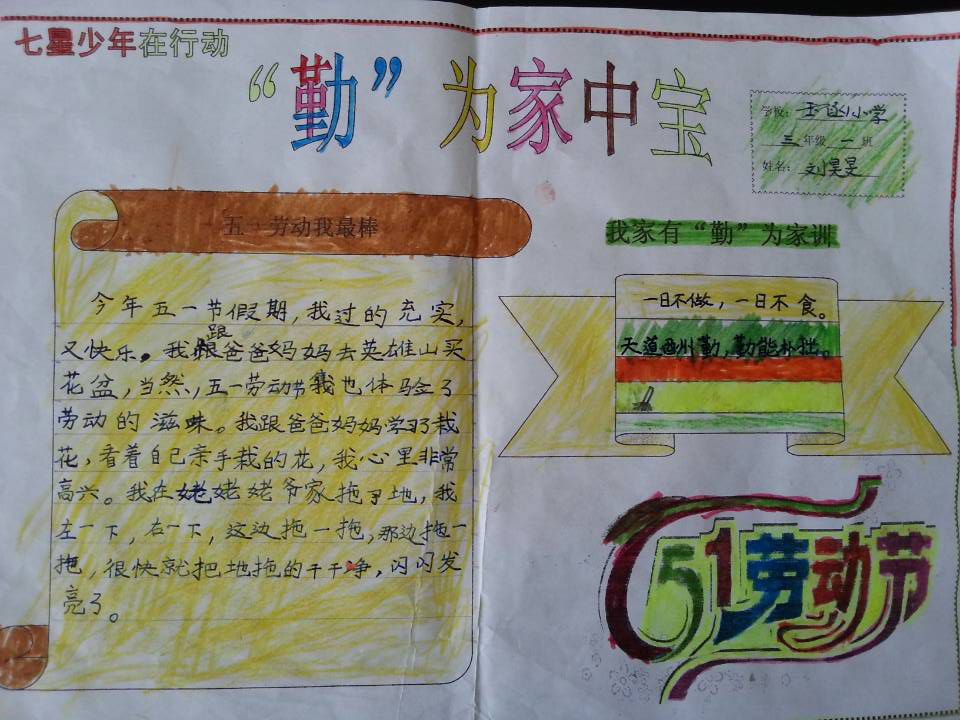 七星少年在行动
“勤”为家中宝
学校：玉函小学
三年级一班
姓名：刘昊旻
五一劳动我最棒
今年五一节假期，我过的充实，
又快乐。我跟爸爸妈妈去英雄山买
花盆，当然，五一劳动节我也体验了
劳动的滋味。我跟爸爸妈妈学习了栽
花，看着自己亲手栽的花，我心里非常
高兴。我在姥姥姥爷家拖了地，我
左一下，右一下，这边拖一拖，那边拖一
拖，很快就把地拖的干干净，闪闪发
亮了。
我家有“勤”为家训
一日不做，一日不食。
天道酬勤，勤能补拙。
51劳动节